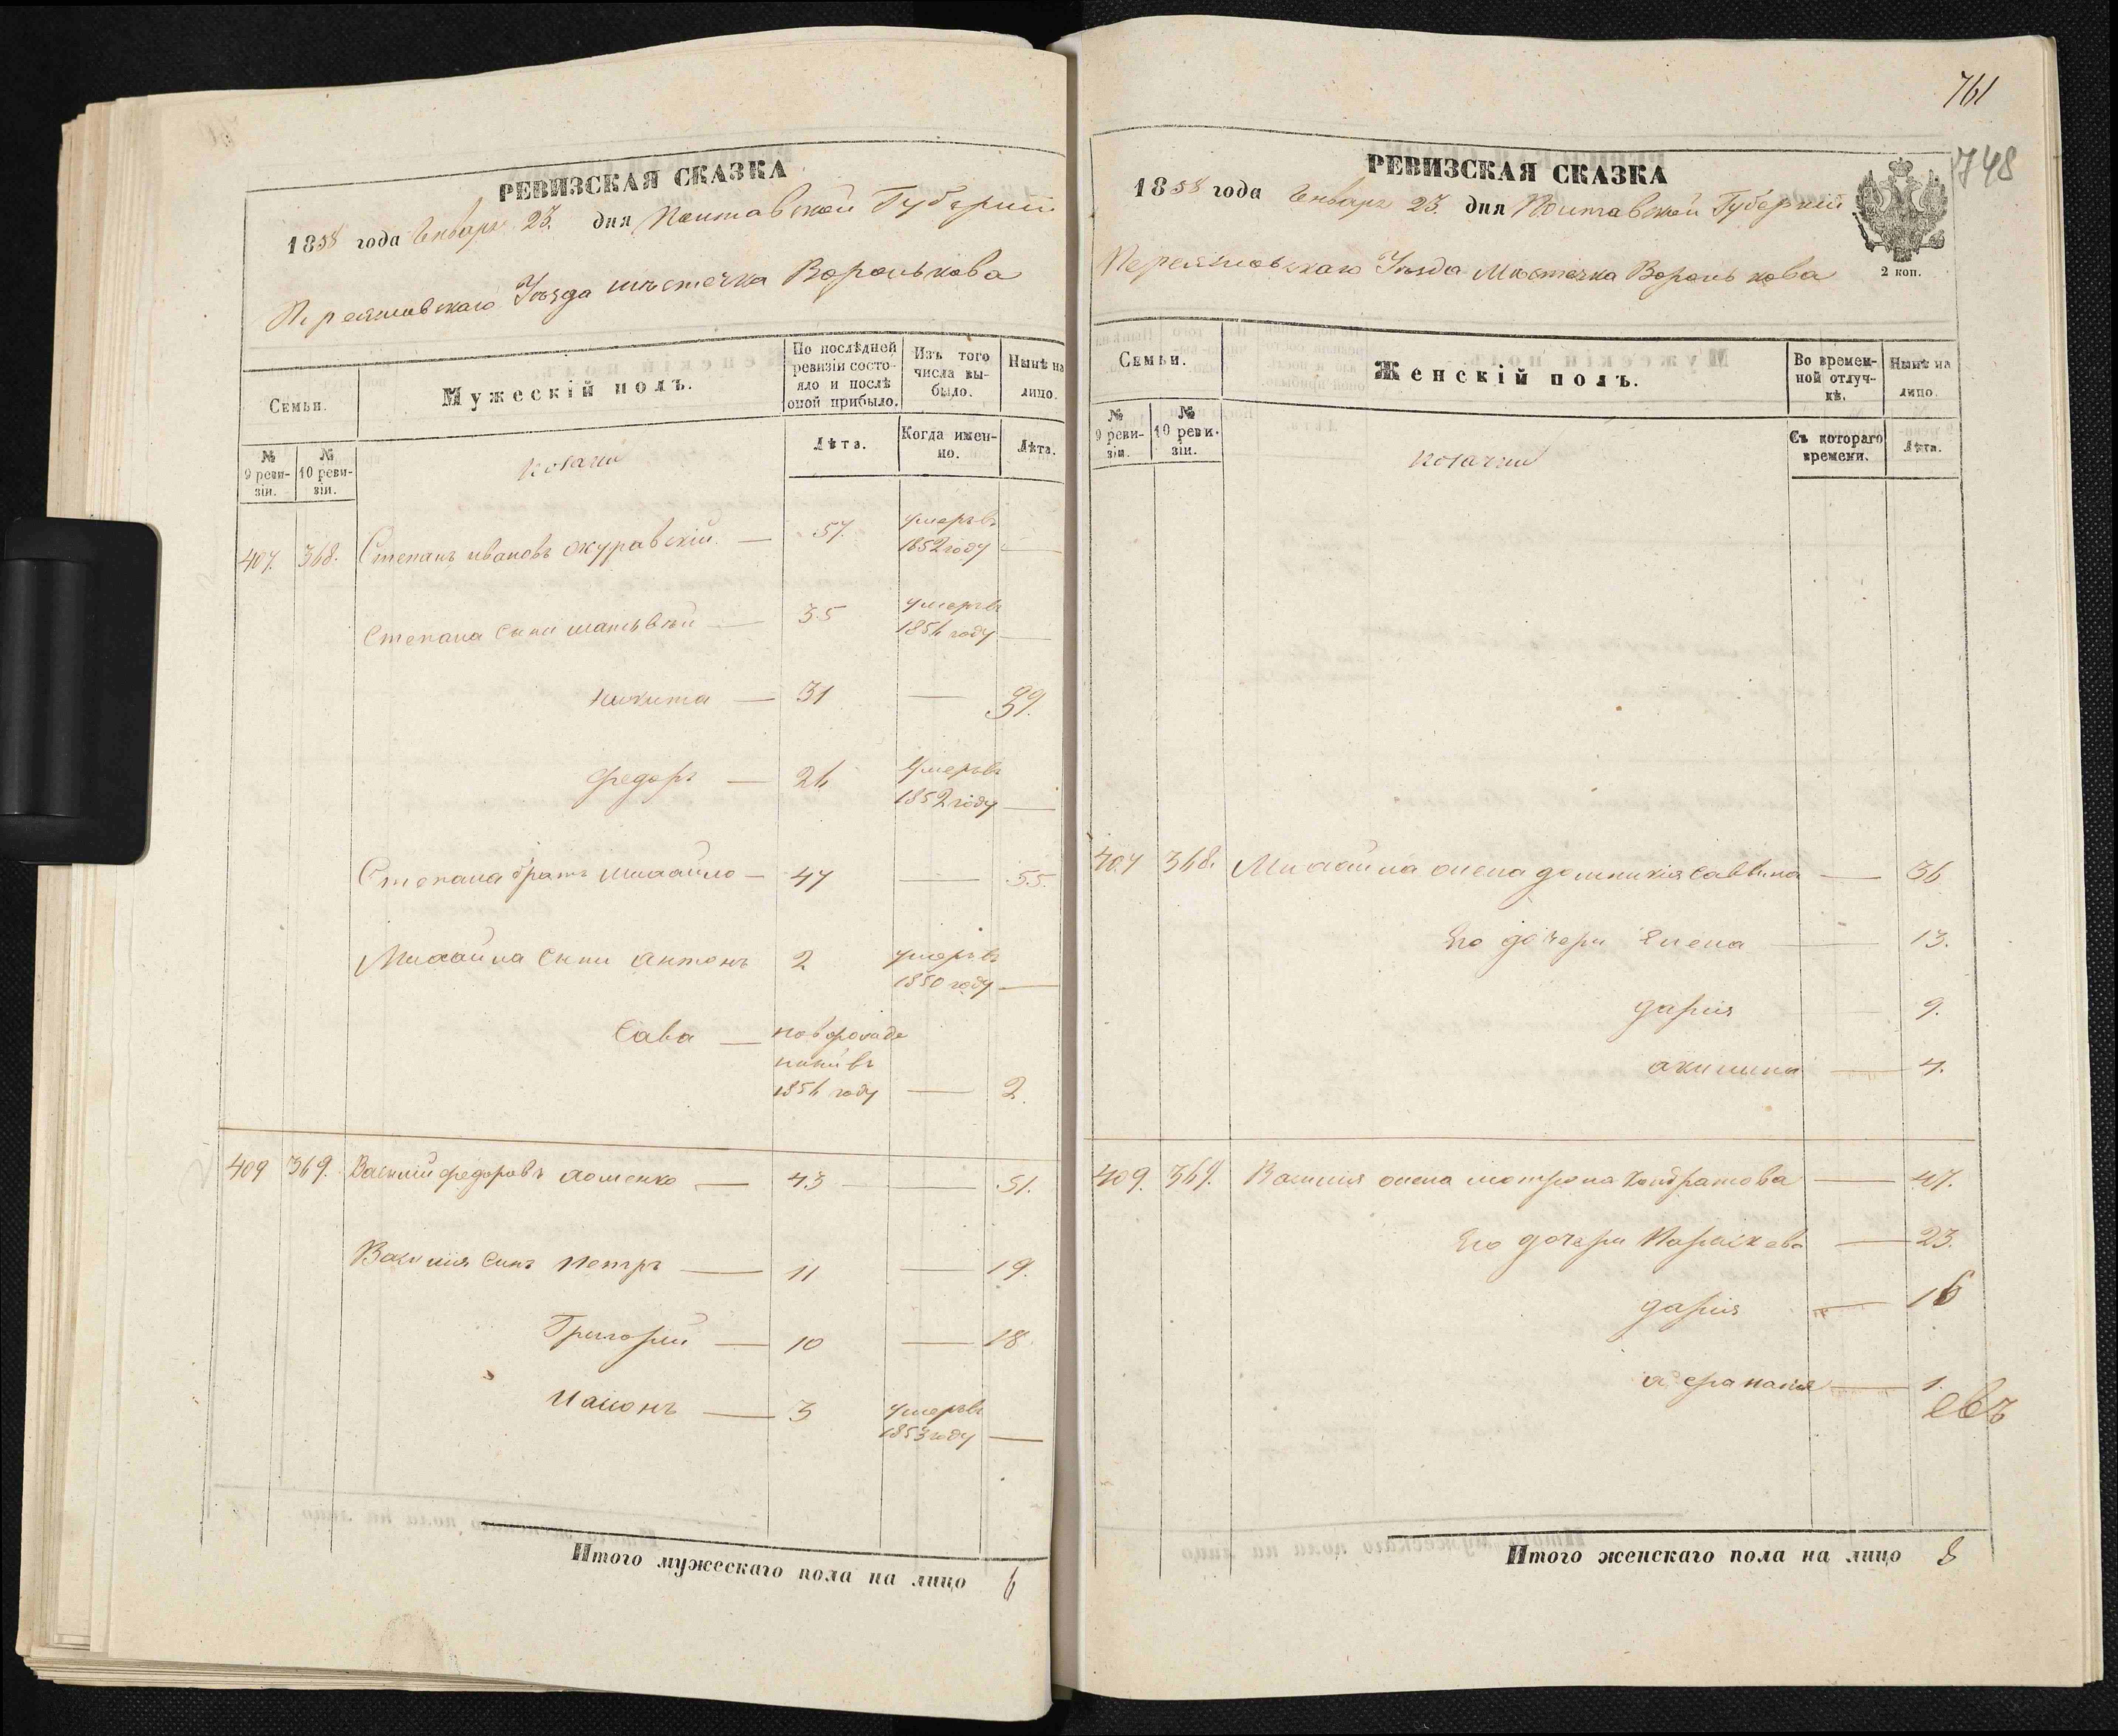 РЕВИЗСКАЯ СКАЗКА
1858 года Генваря 23. дня Полтавской Губернии
Переяславскаго Уѣзда мѣстечка Воронькова
Семьи.
Мужескій полъ.
По послѣдней ревизіи состояло и послѣ оной прибыло.
Изъ того числа выбыло.
Нынѣ на лицо.
№ 9 ревизіи.
№ 10 ревизіи.
козаки
Лѣта.
Когда именно.
Лѣта.
407. 368. Степанъ ивановъ журавскій. — 57. умеръ въ 1852 году —
Степана сыни матьвѣй — 35 умеръ въ 1856 году —
никита — 31 — 39.
федоръ — 26 умеръ въ 1852 году —
Степана братъ михайло — 47 — 55.
Михайла сыни антонъ 2 умеръ въ 1850 году —
Сава — новорожденній въ 1856 году — 2.
409 369. Василій федоровъ хоменко — 43 — 51.
Василія синъ петръ — 11 — 19.
Григорій — 10 — 18.
— 3 умеръ въ 1853 году —
Итого мужескаго пола на лицо 6
761
748
РЕВИЗСКАЯ СКАЗКА
1858 года Генваря 23. дня Полтавской Губерніи
Переяславскаго Уѣзда Мѣстечка Воронькова
2 коп.
Семьи.
Женскій полъ.
Во временной отлучкѣ.
Нынѣ на лицо.
№ 9 ревизіи.
№ 10 ревизіи.
козачки
Съ котораго времени.
Лѣта.
407 368. Михайла жена домникія саввина — 36
Его дочери Елена — 13.
дарія — 9.
акилина — 4.
409. 369. Василія жена мотрона кондратова — 47.
Его дочери Параскева — 23.
дарія — 16
— 1.
евъ
Итого женскаго пола на лицо 8